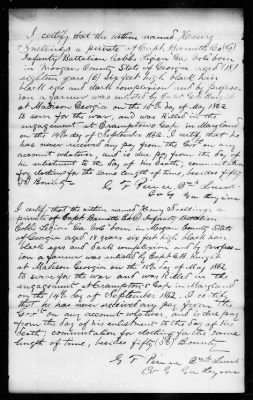 I certify that the within named Henry
Snellings a private of Capt. Barnetts Co (G)
Infantry Battalion Cobbs Legion Ga. Vols born
in Morgan County State of Georgia aged (18)
eighteen years (6) six feet high black hair
black eyes and dark complexion and by profes-
sion a farmer was enlisted by Capt
at Madison Georgia on the 10th day of May 1862
to serve for the war, and was killed in the
engagement at Cramptons Gap in Maryland
on the 14th day of September 1862. I certify that he
has never received any pay from the Govt on any
account whatever, and is due pay from the day of
his enlistment to the day of his death, commutation
for clothing for the same length of time, besides fifty
Bounty
G T Pierce 2nd Lieut
Co G Ga Legion
I certify that the within named Henry Snellings, a
private of Capt Barnetts Co G Infantry Battalion
Cobbs Legion Ga Vols born in Morgan County State
of Georgia aged 18 years six feet high black hair
black eyes and dark complexion and by profess-
ion a farmer was enlisted by Capt
at Madison Georgia on the 10th day of May 1862
to serve for the war and was killed in the
engagement at Cramptons Gap in Maryland
on the 14th day of September 1862. I certify
that he has never received any pay from the
Govt on any account whatever, and is due pay
from the day of his enlistment to the day of his
death, commutation for clothing for the same
length of time, besides fifty (50) Bounty
G T Pierce 2nd Lieut
Co G Ga Legion